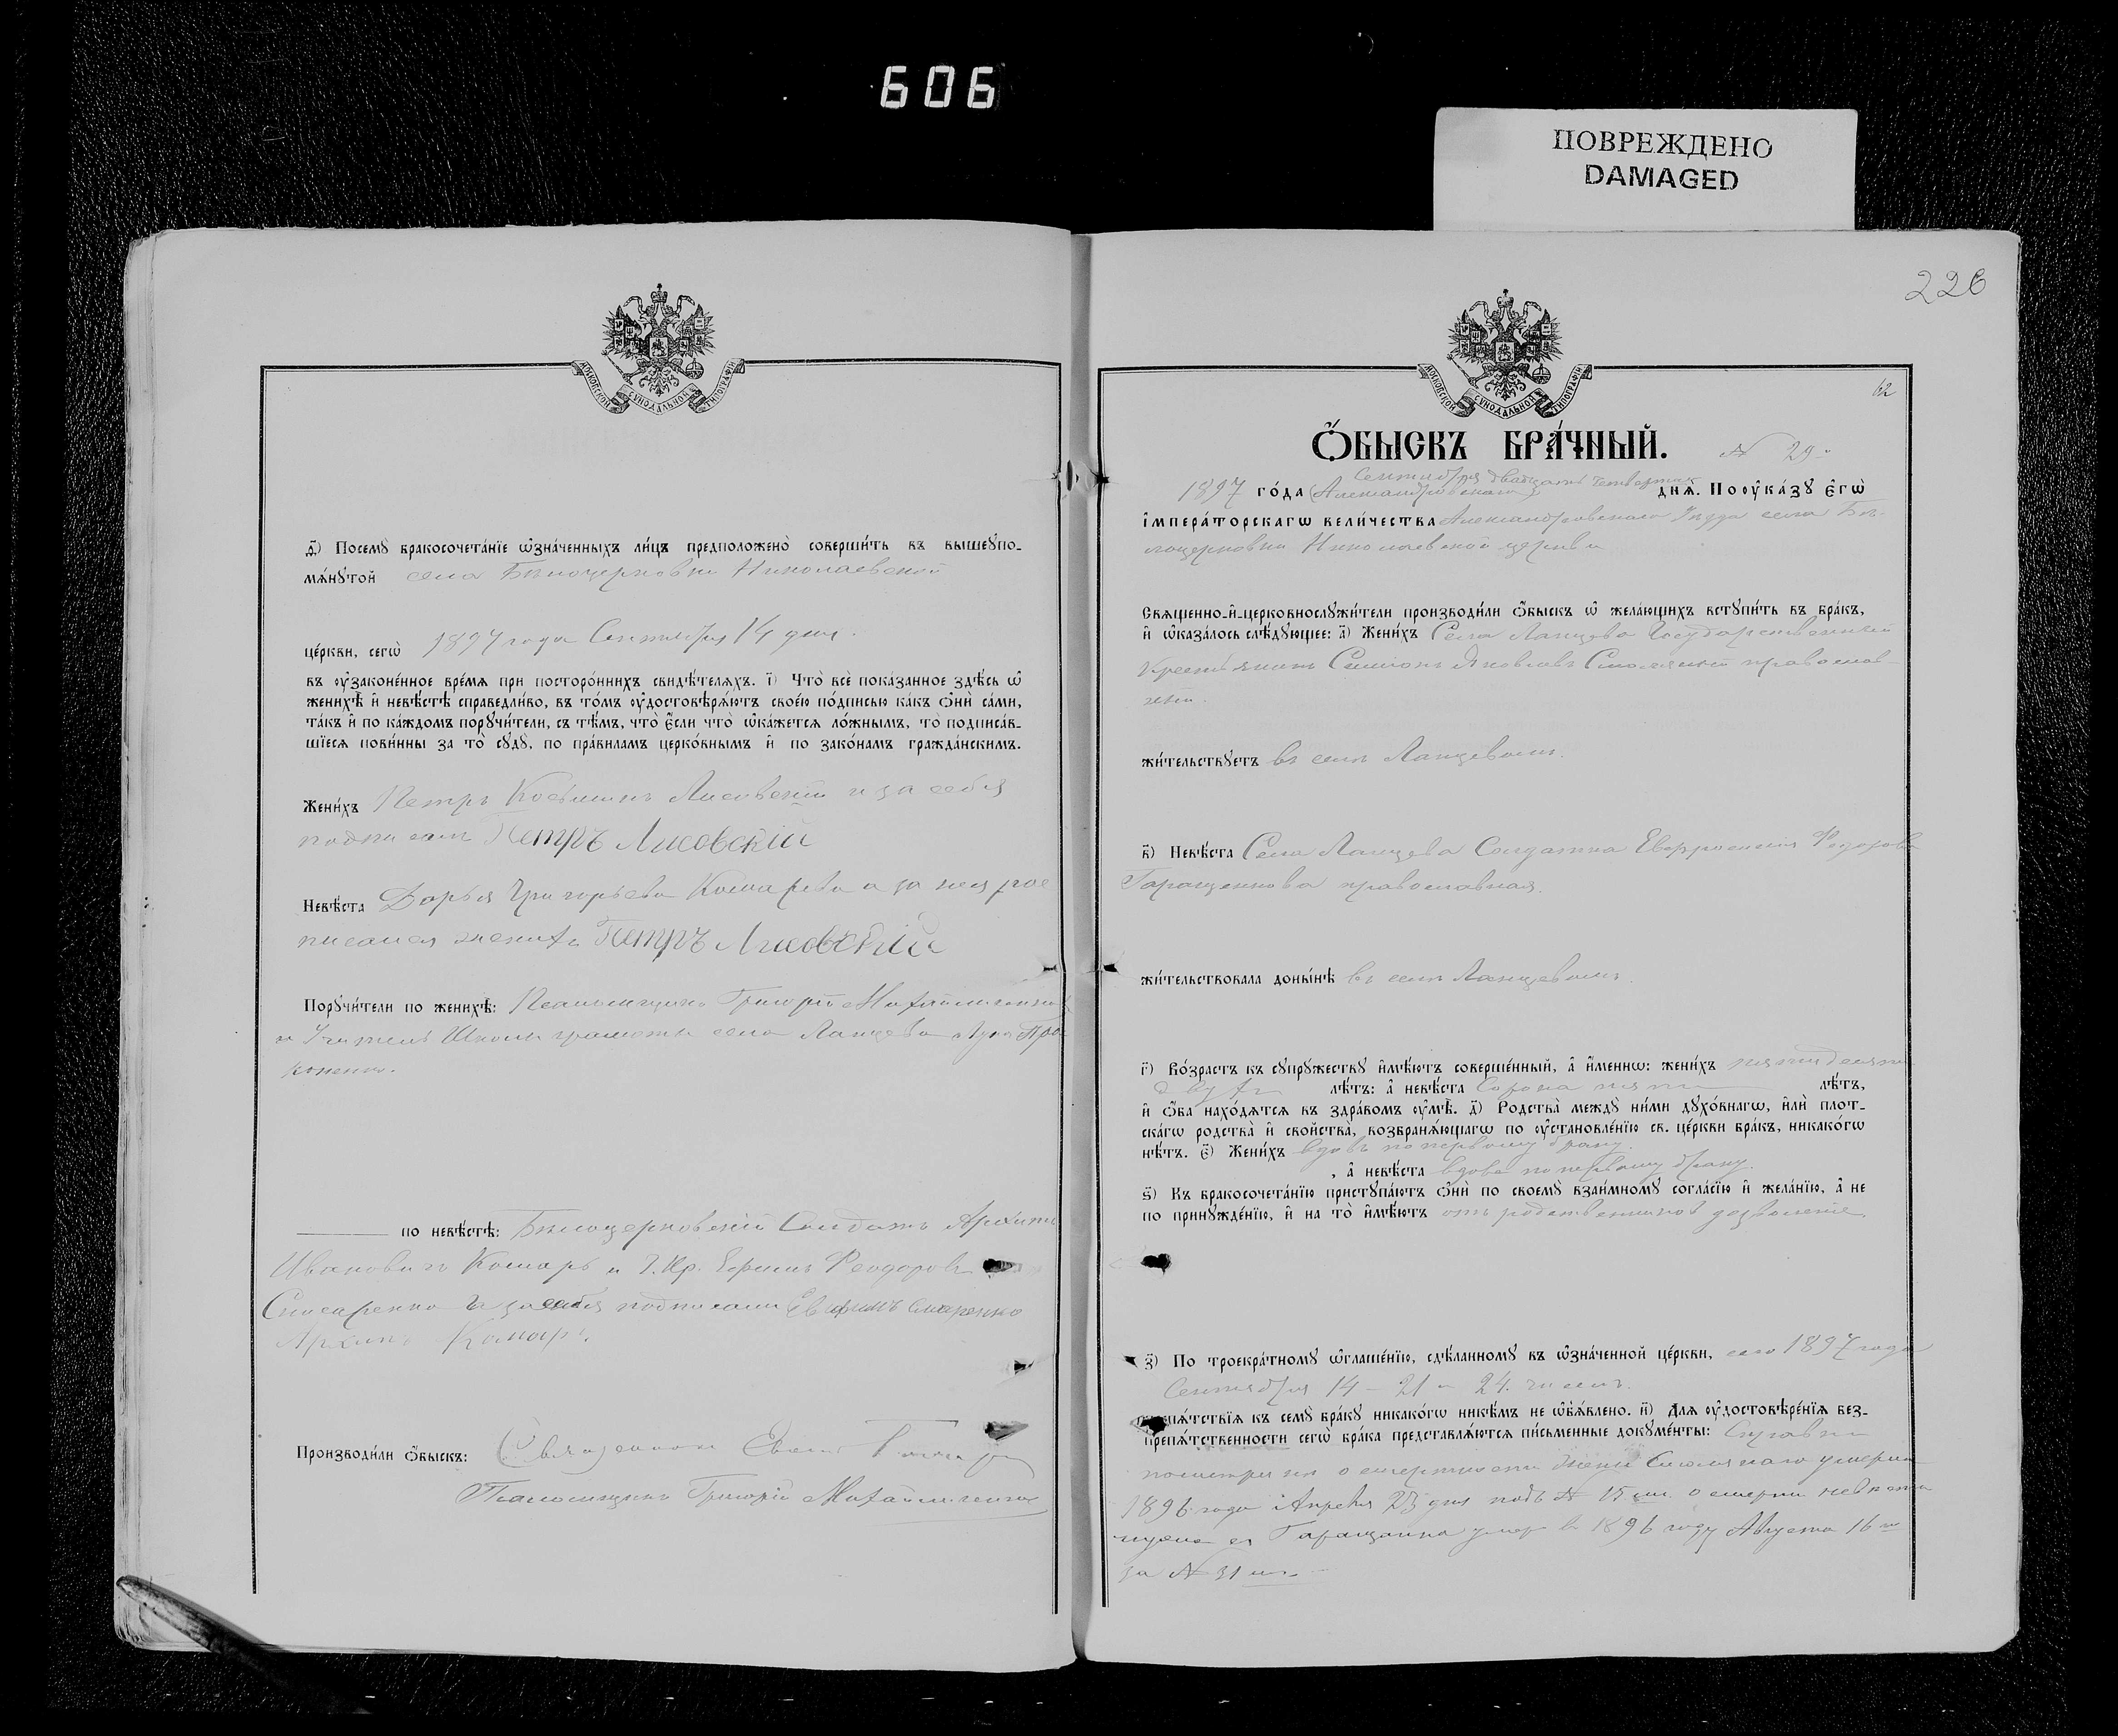 606
ПОВРЕЖДЕНО
DAMAGED
МОСКОВСКОЙ СѴНОДАЛЬНОЙ ТИПОГРАФІИ
ѳ҃) Посемꙋ бракосочета́нїе ѡ҆зна́ченныхъ ли́цъ предположено̀ соверши́ть въ вышеꙋпо-
мѧ́нꙋтой села Бѣлоцерковки Николаевской
це́ркви, сегѡ̀ 1897 года Сентября 14 дня.
въ ᲂу҆законе́нное вре́мѧ при посторо́ннихъ свидѣ́телѧхъ. і҃) Что̀ всѐ пока́занное здѣ́сь ѡ҆
женихѣ̀ и҆ невѣ́стѣ справедли́во, въ то́мъ ᲂу҆достовѣрѧ́ютъ свое́ю по́дписью ка́къ ѻ҆нѝ са́ми,
та́къ и҆ по ка́ждомъ порꙋчи́тели, съ тѣ́мъ, что̀ є҆́сли что̀ ѡ҆ка́жетсѧ ло́жнымъ, то̀ подписа́в-
шїесѧ пови́нны за то̀ сꙋдꙋ̀, по пра́виламъ церко́внымъ и҆ по зако́намъ гражда́нскимъ.
Жени́хъ Петръ Косьминъ Лисовскій и за себя
подписалъ Петръ Лисовскій
Невѣ́ста Дарья Григорьева Комарева а за нея рос
писался женихъ Петръ Лисовскій
Порꙋчи́тели по женихѣ̀: Псаломщикъ Григорій Михайличенко
и Учитель Школы грамоты села Ланцева Лука Про
копенко.
по невѣ́стѣ: Бѣлоцерковскій Солдатъ Архипъ
Ивановичъ Комаръ и Г. Кр. Ефимъ Феодоровъ
Слюсаренко и за себя подписали Евфимъ
Архипъ Комаръ.
Производи́ли ѻ҆́быскъ: Священникъ
Псаломщикъ Григорій Михайличенко
226
МОСКОВСКОЙ СѴНОДАЛЬНОЙ ТИПОГРАФІИ
62
Ѻ҆́БЫСКЪ БРА́ЧНЫЙ. № 29.
Сентября двадцать четвертаго
1897 го́да (Александровскаго) днѧ̀. По ᲂу҆ка́зꙋ є҆гѡ̀
і҆мпера́торскагѡ вели́чества Александровскаго Уѣзда села Бѣ-
лоцерковки Николаевской церкви
Свѧще́нно-и҆-церковнослꙋжи́тели производи́ли ѻ҆́быскъ ѡ҆ жела́ющихъ встꙋпи́ть въ бра́къ,
и҆ ѡ҆каза́лось слѣ́дꙋющее: а҃) Жени́хъ Села Ланцева Государственный
Крестьянинъ Симіонъ Яковлевъ Смоляный православ-
ный.
жи́тельствꙋетъ въ селѣ Ланцевомъ.
в҃) Невѣ́ста Села Ланцева Солдатка Евфросинія Федорова
Таращенкова православная.
жи́тельствовала доны́нѣ въ селѣ Ланцевомъ.
г҃) Во́зрастъ къ сꙋпрꙋ́жествꙋ и҆мѣ́ютъ соверше́нный, а҆ и҆́меннѡ: жени́хъ пятидесяти
двухъ лѣ́тъ: а҆ невѣ́ста Сорока пяти лѣ́тъ,
и҆ ѻ҆́ба нахо́дѧтсѧ въ здра́вомъ ᲂу҆мѣ̀. д҃) Родства̀ междꙋ̀ ни́ми дꙋхо́внагѡ, и҆лѝ плот-
ска́гѡ родства̀ и҆ свойства̀, возбранѧ́ющагѡ по ᲂу҆становле́нїю св. це́ркви бра́къ, никако́гѡ
нѣ́тъ. є҃) Жени́хъ вдовъ по первому браку.
, а҆ невѣ́ста вдова по первому браку.
ѕ҃) Къ бракосочета́нїю пристꙋпа́ютъ ѻ҆нѝ по своемꙋ̀ взаи́мномꙋ согла́сїю и҆ жела́нїю, а҆ не
по принꙋжде́нїю, и҆ на то̀ и҆мѣ́ютъ отъ родственниковъ дозволеніе
з҃) По троекра́тномꙋ ѡ҆глаше́нїю, сдѣ́ланномꙋ въ ѡ҆зна́ченной це́ркви, сего 1897 года
Сентября 14 – 21 и 24 числъ.
препѧ́тствїѧ къ семꙋ̀ бра́кꙋ никако́гѡ никѣ́мъ не ѡ҆б̾ѧ́влено. и҃) Длѧ ᲂу҆достовѣре́нїѧ без-
препѧ́тственности сегѡ̀ бра́ка представлѧ́ютсѧ пи́сьменные докꙋме́нты: Справки
по метрикѣ о смертности жены Смолянаго умерш
1896 года Апреля 23 дня подъ № 15 о смерти невѣсты
мужа ея Таращенка умер в 1896 году Августа 16го
за № 31 мъ.